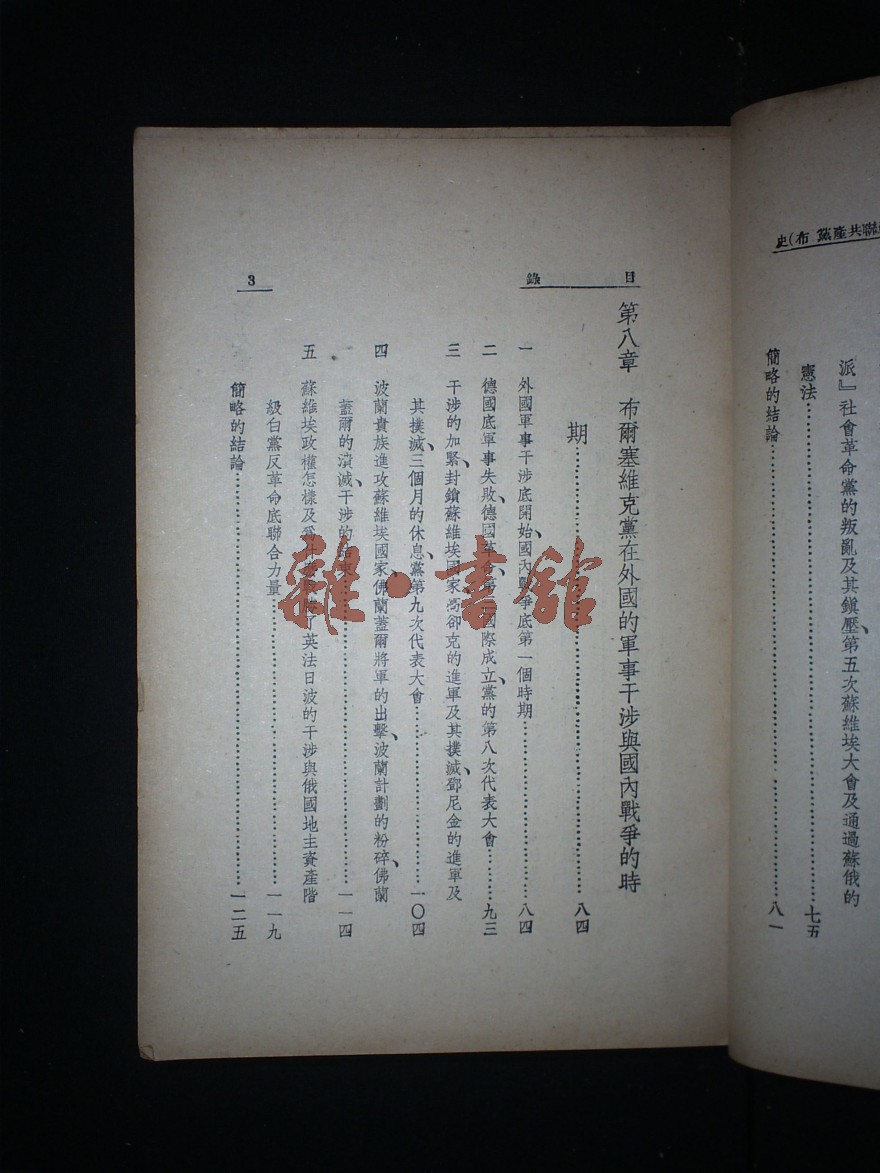 聯共產黨(布)史
派』社會革命黨的叛亂及其鎭壓、第五次蘇維埃大會及通過蘇俄的
憲法……七五
簡略的結論……八一
目錄
3
第八章 布爾塞維克黨在外國的軍事干涉與國內戰爭的時
期……八四
一 外國軍事干涉底開始、國內戰爭底第一個時期……八四
二 德國底軍事失敗、德國革命、第 國際成立、黨的第八次代表大會……九三
三 干涉的加緊、封鎖蘇維埃國家、高卻克的進軍及其撲滅、鄧尼金的進軍及
其撲滅、三個月的休息、黨第九次代表大會……一〇四
四 波蘭貴族進攻蘇維埃國家、佛蘭蓋爾將軍的出擊、波蘭計劃的粉碎、佛蘭
蓋爾的潰滅、干涉的 束……一一四
五 蘇維埃政權怎樣及爲什 了英法日波的干涉與俄國地主資產階
級白黨反革命底聯合力量……一一九
簡略的結論……一二五
雜·書館